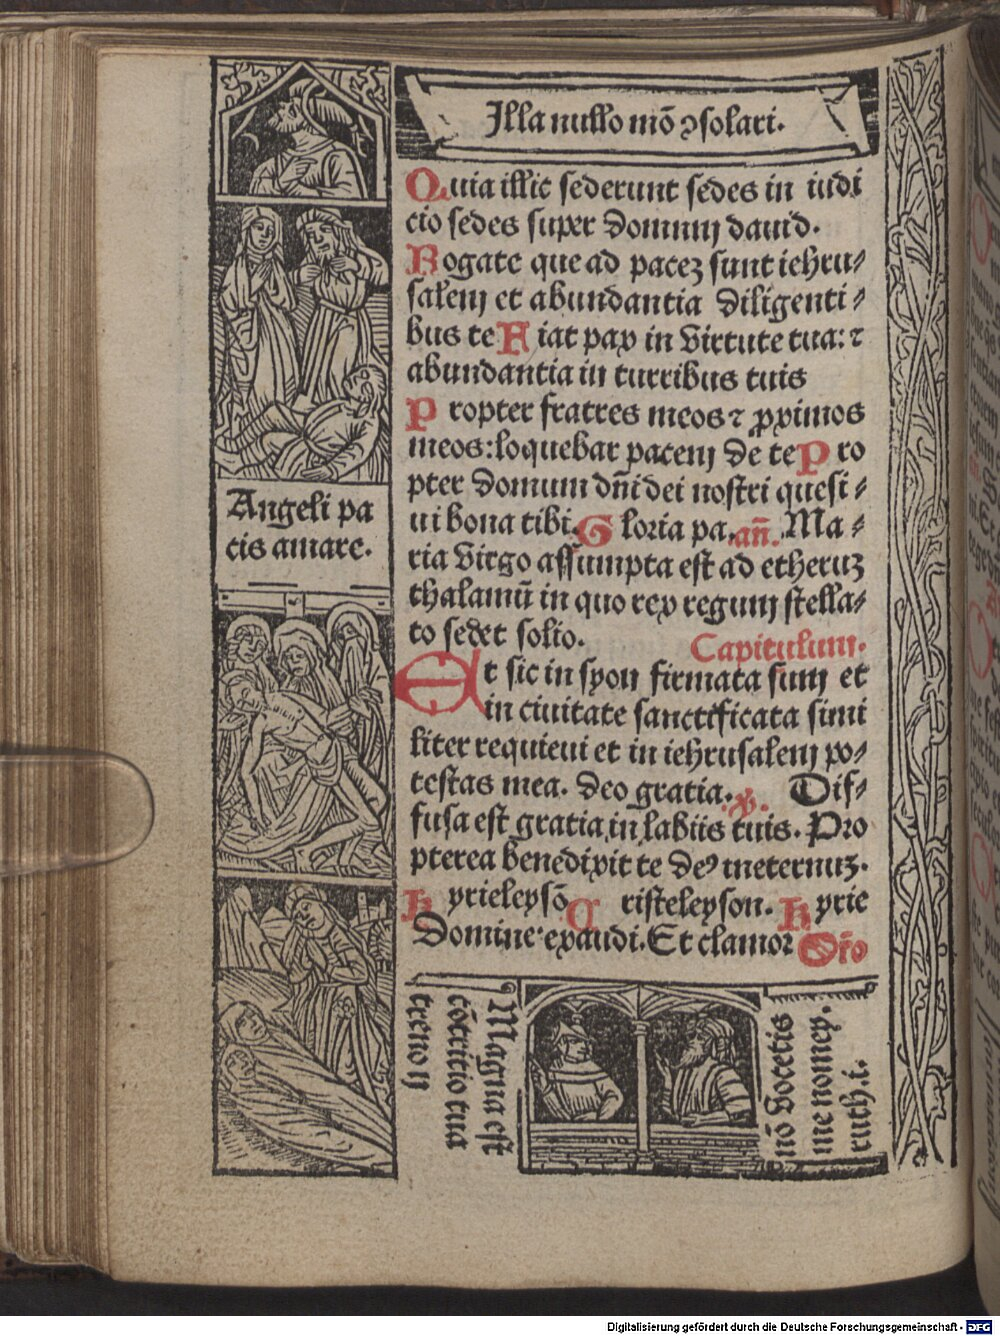 Illa nullo mō ꝯsolari.
Quia illic sederunt sedes in iudi
cio sedes super domum dauid.
Rogate que ad pacez sunt iehru⸗
salem et abundantia diligenti⸗
bus te Fiat pax in virtute tua: ⁊
abundantia in turribus tuis
Propter fratres meos ⁊ ꝓximos
meos: loquebar pacem de te Pro
pter domum dn̄i dei nostri quesi⸗
ui bona tibi. Gloria pa. an̄. Ma⸗
ria virgo assumpta est ad etheruz
thalamū in quo rex regum stella⸗
to sedet solio. Capitulum.
Et sic in syon firmata sum et
in ciuitate sanctificata simi
liter requieui et in iehrusalem po⸗
testas mea. deo gratia. ꝟ. Dif⸗
fusa est gratia in labiis tuis. Pro
pterea benedixit te deꝰ ineternuz.
Kyrieleysō Cristeleyson. Kyrie
Domine exaudi. Et clamor Orō
Angeli pa
cis amare.
Magna est
cōtritio tua
treno ij
nō vocetis
me noemy.
ruth .i.
Digitalisierung gefördert durch die Deutsche Forschungsgemeinschaft - DFG